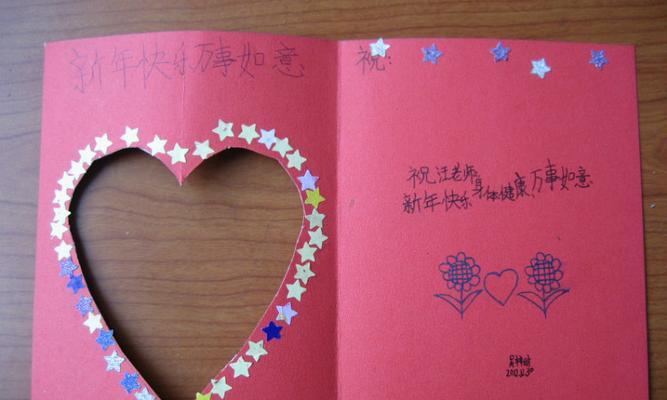 新年快乐万事如意
祝:
祝汪老师
新年快乐身体健康、万事如意